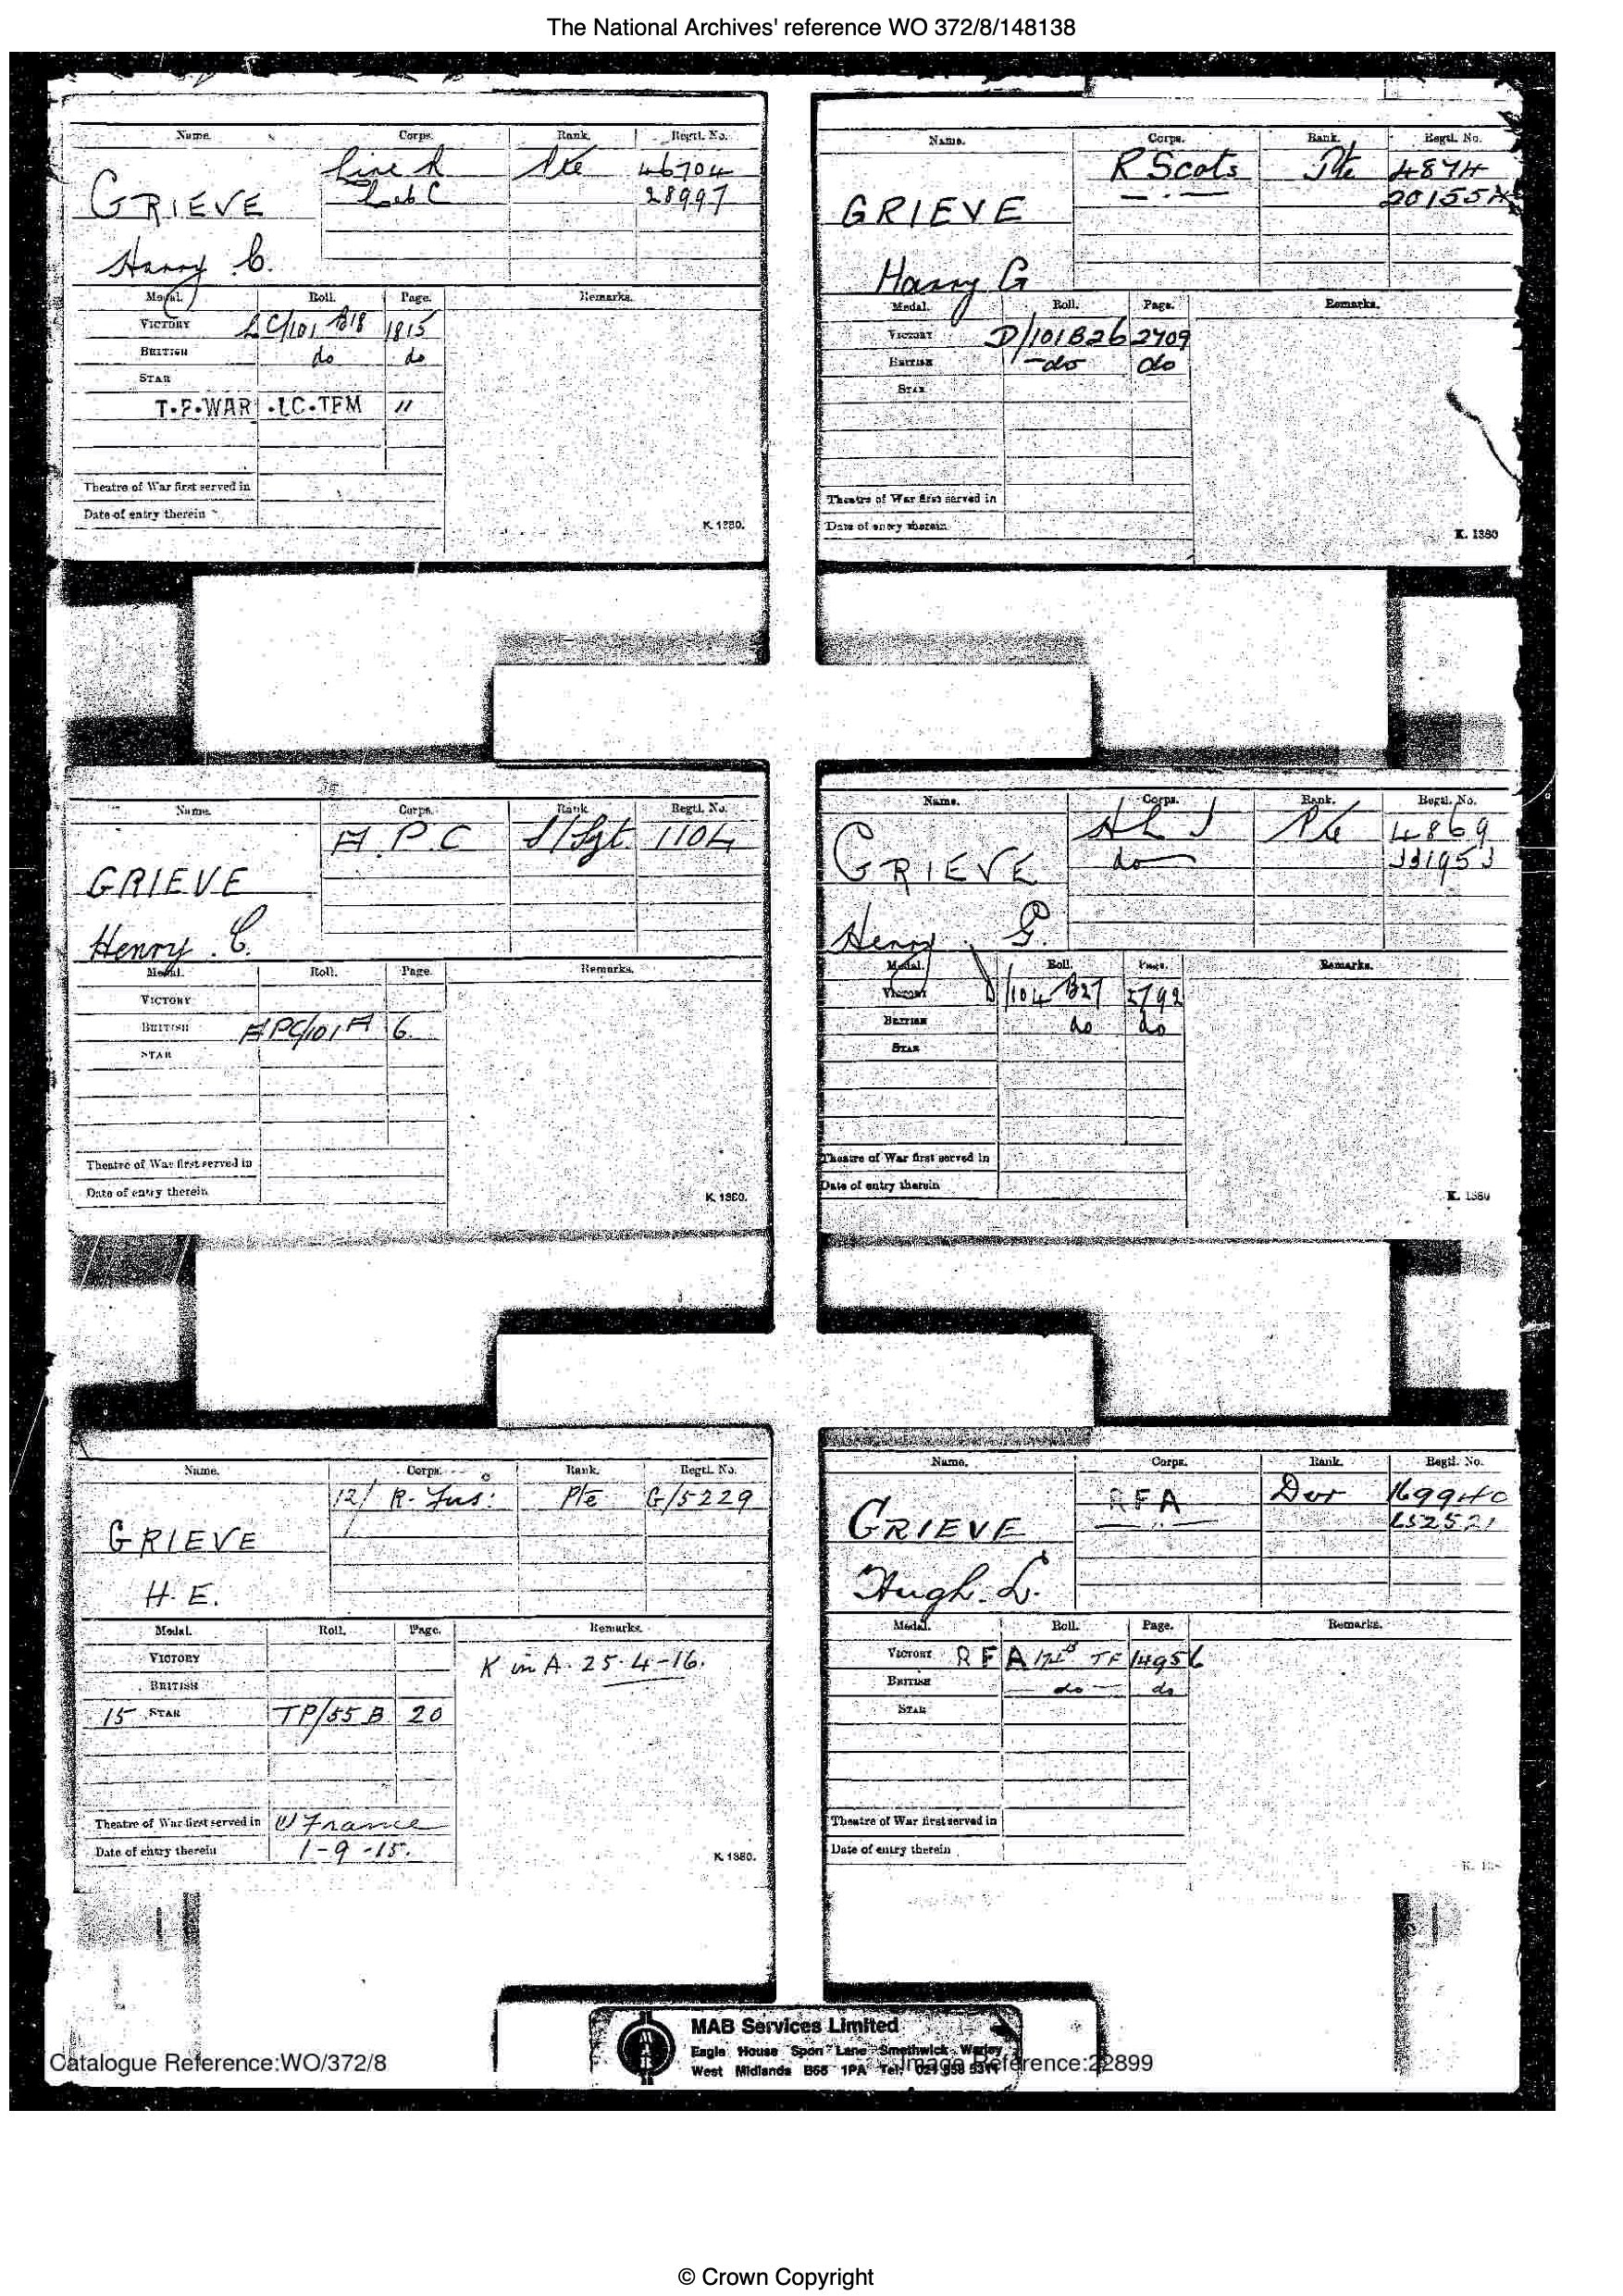 The National Archives' reference WO 372/8/148138
Name. Corps. Rank. Regtl. No.
GRIEVE
Harry C.
Pte 46704
Lab C 28997
Medal. Roll. Page. Remarks.
VICTORY LC/101 B18 1815
BRITISH do do
STAR
T.F.WAR .LC.TFM "
Theatre of War first served in
Date of entry therein
K. 1380.
Name. Corps. Rank. Regtl. No.
R Scots Pte 4874
GRIEVE
Harry G
Medal. Roll. Page. Remarks.
VICTORY D/101B26 2709
BRITISH -do do
STAR
Theatre of War first served in
Date of entry therein
K. 1380
Name. Corps. Rank. Regtl. No.
A.P.C S/Sgt 1104
GRIEVE
Henry. C.
Medal. Roll. Page. Remarks.
VICTORY
BRITISH APC/101A 6.
STAR
Theatre of War first served in
Date of entry therein
K. 1380.
Name. Corps. Rank. Regtl. No.
Pte 4869
do
GRIEVE
Henry. G.
Medal. Roll. Page. Remarks.
VICTORY /104 B27
BRITISH do do
STAR
Theatre of War first served in
Date of entry therein
K. 1380
Name. Corps. Rank. Regtl. No.
12/ R. Fus: Pte G/5229
GRIEVE
H. E.
Medal. Roll. Page. Remarks.
VICTORY K in A. 25.4-16.
BRITISH
15 STAR TP/55B 20
Theatre of War first served in (1) France
Date of entry therein 1-9-15.
K. 1380.
Name. Corps. Rank. Regtl. No.
RFA Dvr 169940
652521
GRIEVE
Hugh. L.
Medal. Roll. Page. Remarks.
VICTORY RFA TF 14956
BRITISH do do
STAR
Theatre of War first served in
Date of entry therein
MAB Services Limited
Eagle House Spon Lane Smethwick Warley
West Midlands B66 1PA Tel:
Catalogue Reference:WO/372/8 Image Reference:22899
© Crown Copyright